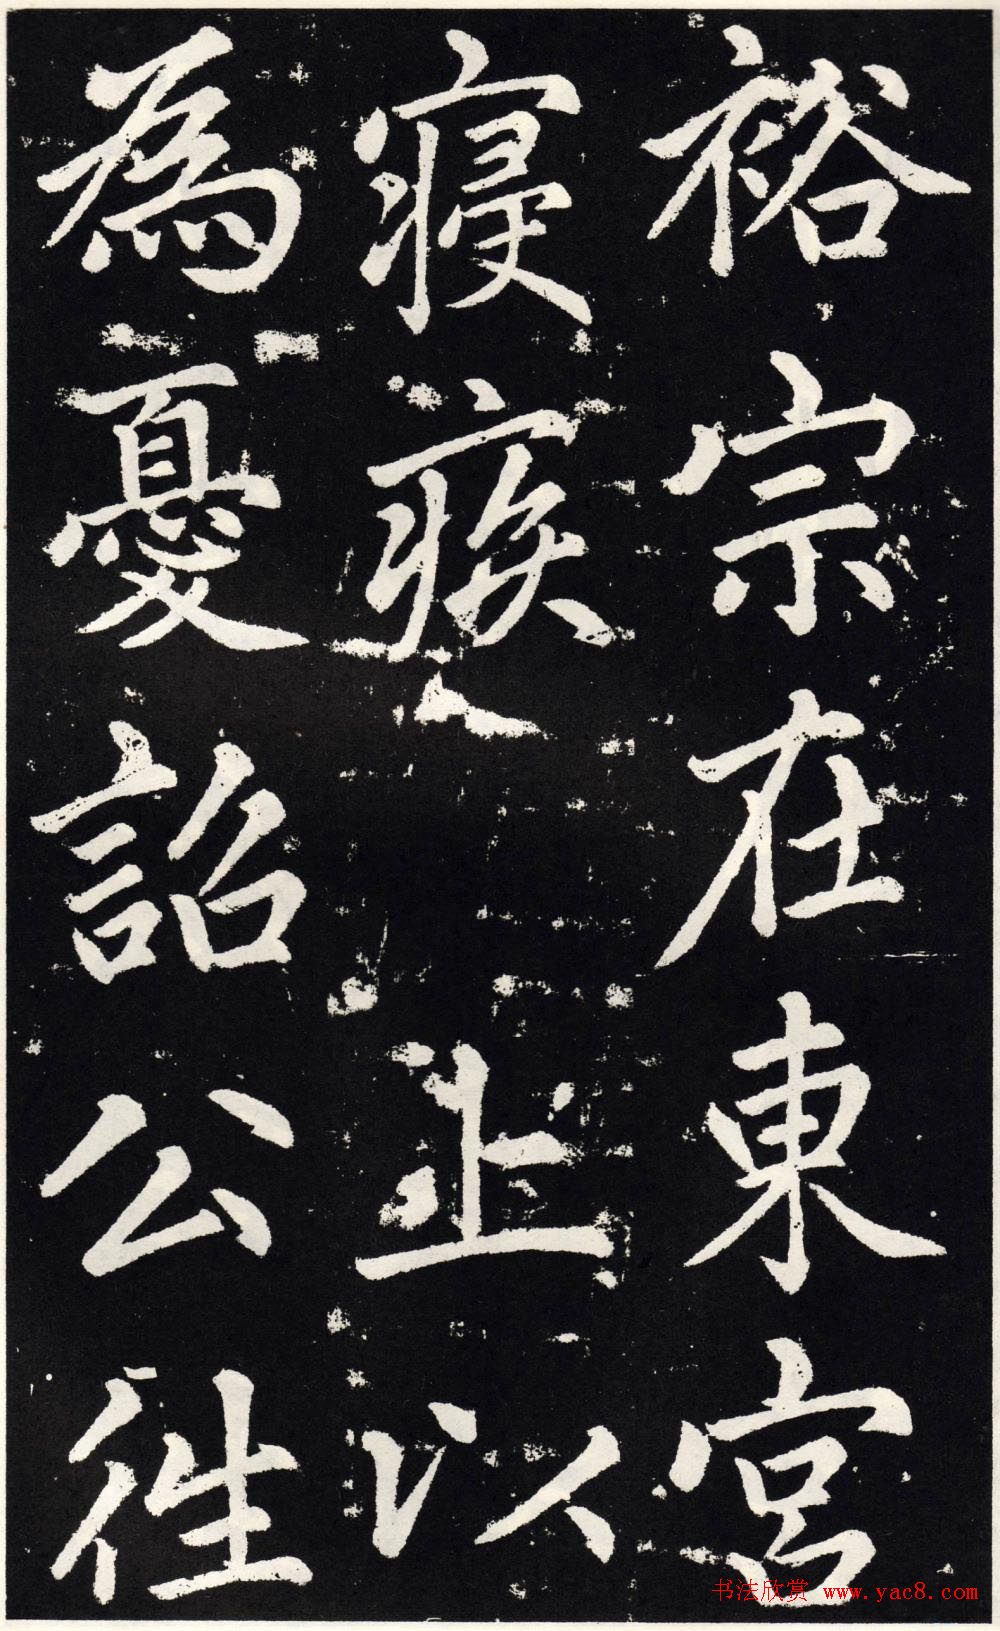 裕宗在東宮
寢疾上以
為憂詔公往
书法欣赏 www.yac8.com